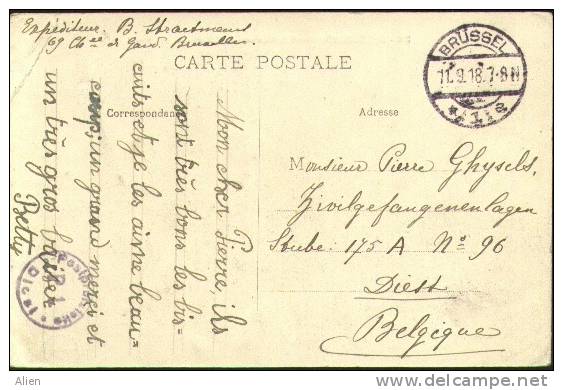 Expéditeur. B. Straetmans
69 Ch^ée de Gand Bruxelles
CARTE POSTALE
BRUSSEL
11.9.18.7-8N
Correspondance
Adresse
Mon cher Pierre, ils
sont très bons les bis-
cuits et je les aime beau-
coup, un grand merci et
un très gros baiser
Betty
Monsieur Pierre Ghysels,
Zivilgefangenenlagen
Stube: 175 A N° 96
Diest
Belgique
P. 1
Diest
Alien
delcampe.net